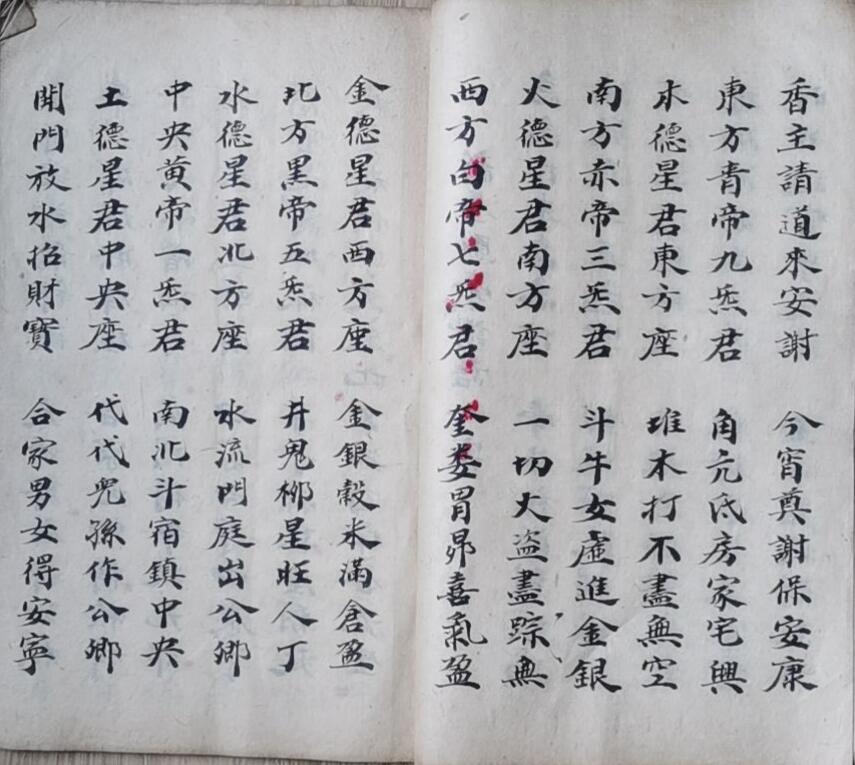 香主請道來安謝 今宵奠謝保安康
東方青帝九炁君 角亢氐房家宅興
木德星君東方座 堆木打不盡無空
南方赤帝三炁君 斗牛女虛進金銀
火德星君南方座 一切火盗盡踪無
西方白帝七炁君 奎婁胃昴喜氣盈
金德星君西方座 金銀穀米滿倉盈
北方黑帝五炁君 井鬼柳星旺人丁
水德星君北方座 水流門庭出公卿
中央黃帝一炁君 南北斗宿鎮中央
土德星君中央座 代代兒孫作公卿
開門放水招財寶 合家男女得安寧